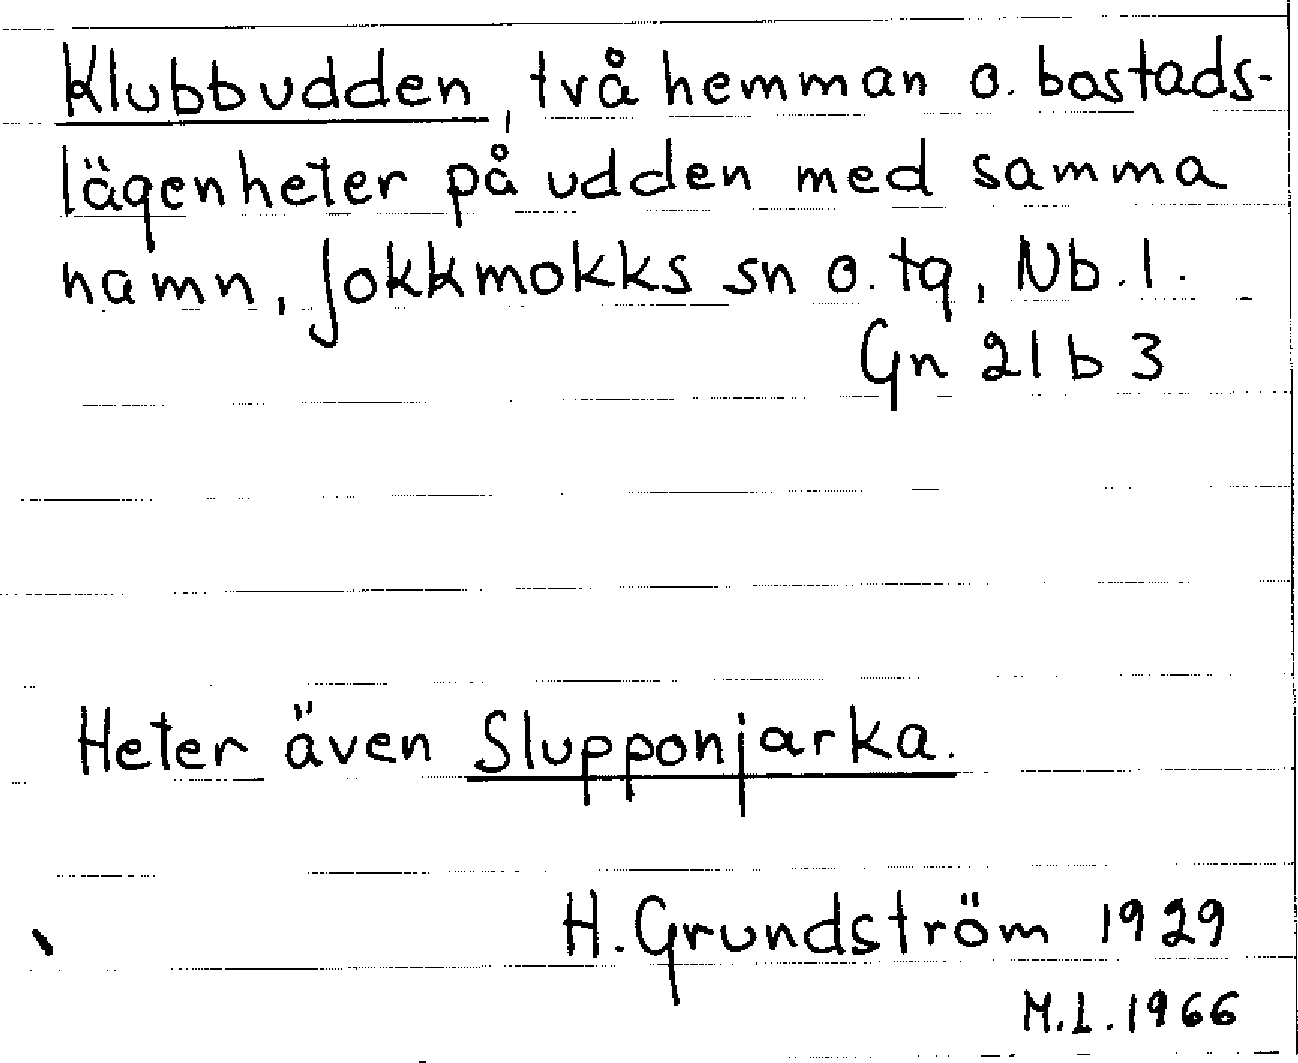 Klubbudden, två hemman o. bostads-
lägenheter på udden med samma
namn, Jokkmokks sn o. tg, Nb. l.
Gn 21 b 3
Heter även Slupponjarka.
H. Grundström 1929
M.L. 1966